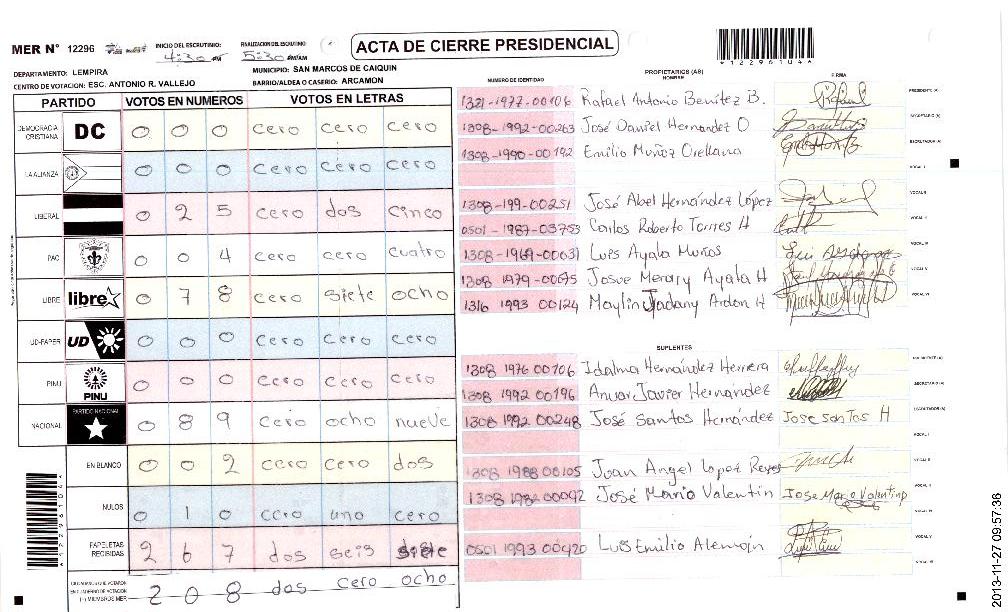 MER N° 12296 INICIO DEL ESCRUTINIO 4:30 PM FINALIZACION DEL ESCRUTINIO 5:30 PM/AM ACTA DE CIERRE PRESIDENCIAL
*122961044*
DEPARTAMENTO: LEMPIRA MUNICIPIO: SAN MARCOS DE CAIQUIN
CENTRO DE VOTACION: ESC. ANTONIO R. VALLEJO BARRIO/ALDEA O CASERIO: ARCAMON
PARTIDO VOTOS EN NUMEROS VOTOS EN LETRAS
DEMOCRACIA CRISTIANA DC 0 0 0 cero cero cero
LA ALIANZA 0 0 0 cero cero cero
LIBERAL 0 2 5 cero dos cinco
PAC 0 0 4 cero cero cuatro
LIBRE libre 0 7 8 cero siete ocho
UD-FAPER UD 0 0 0 cero cero cero
PINU PINU 0 0 0 cero cero cero
NACIONAL PARTIDO NACIONAL 0 8 9 cero ocho nueve
EN BLANCO 0 0 2 cero cero dos
NULOS 0 1 0 cero uno cero
PAPELETAS RECIBIDAS 2 6 7 dos seis siete
CIUDADANOS QUE VOTARON EN CUADERNO DE VOTACION (+) MIEMBROS MER 2 0 8 dos cero ocho
NUMERO DE IDENTIDAD PROPIETARIOS (AS) NOMBRE FIRMA
1321-1977-00106 Rafael Antonio Benítez B. PRESIDENTE (A)
1308-1992-00263 José Daniel Hernandez O SECRETARIO (A)
1308-1990-00192 Emilio Muñoz Orellana ESCRUTADOR (A)
VOCAL I
1308-199-00251 José Abel Hernández López VOCAL II
0501-1987-03753 Carlos Roberto Torres H
1308-1969-00031 Luis Ayala Muños
1308 1979-00095 Josue Merary Ayala H VOCAL V
1316 1993 00124 Maylin Jadany Ardon H
SUPLENTES
1308 1976 00706 Idalma Hernández Herrera
1308 1992 00196 Anuar Javier Hernandez SECRETARIO (A)
1308 1992 00248 José Santos Hernández Jose santos H ESCRUTADOR (A)
VOCAL I
1308 1988 00105 Juan Angel Lopez Reyes
1308 1982 00092 José Mario Valentin Jose Mario Valentin
0501 1993 00420 Luis Emilio Alemán VOCAL V
2013-11-27 09:57:36